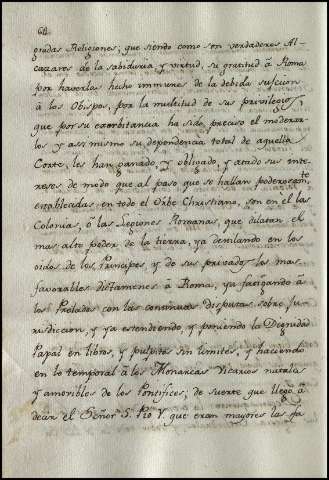 64.
gradas Religiones; que siendo como son verdaderos Al-
cazares de la sabiduria y virtud, su gratitud â Roma
por haverlas hecho immunes de la debida sujecion
â los Obispos, por la multitud de sus privilegios;
que por su exorbitancia ha sido preciso el moderar-
los y assi mismo su dependencia total de aquella
Corte, les han ganado, y obligado, y atado sus inte-
reses de modo que al paso que se hallan poderosamte
entabladas en todo el Orbe Christiano, son en êl las
Colonias, ô las Legiones Romanas, que dilatan el
mas alto poder de la tierra, ya destilando en los
oidos de los Principes, y de sus privados los mas
favorables dictamenes â Roma, ya fatigando â
los Prelados con las continuas disputas sobre Ju-
risdiccion, y ya estendiendo, y poniendo la Dignidad
Papal en libros, y pulpitos sin limites, y haciendo
en lo temporal â los Monarcas Vicarios natales
y amovibles de los Pontifices; de suerte que llegô â
decir el Señor S. Pio V. que eran mayores las fa